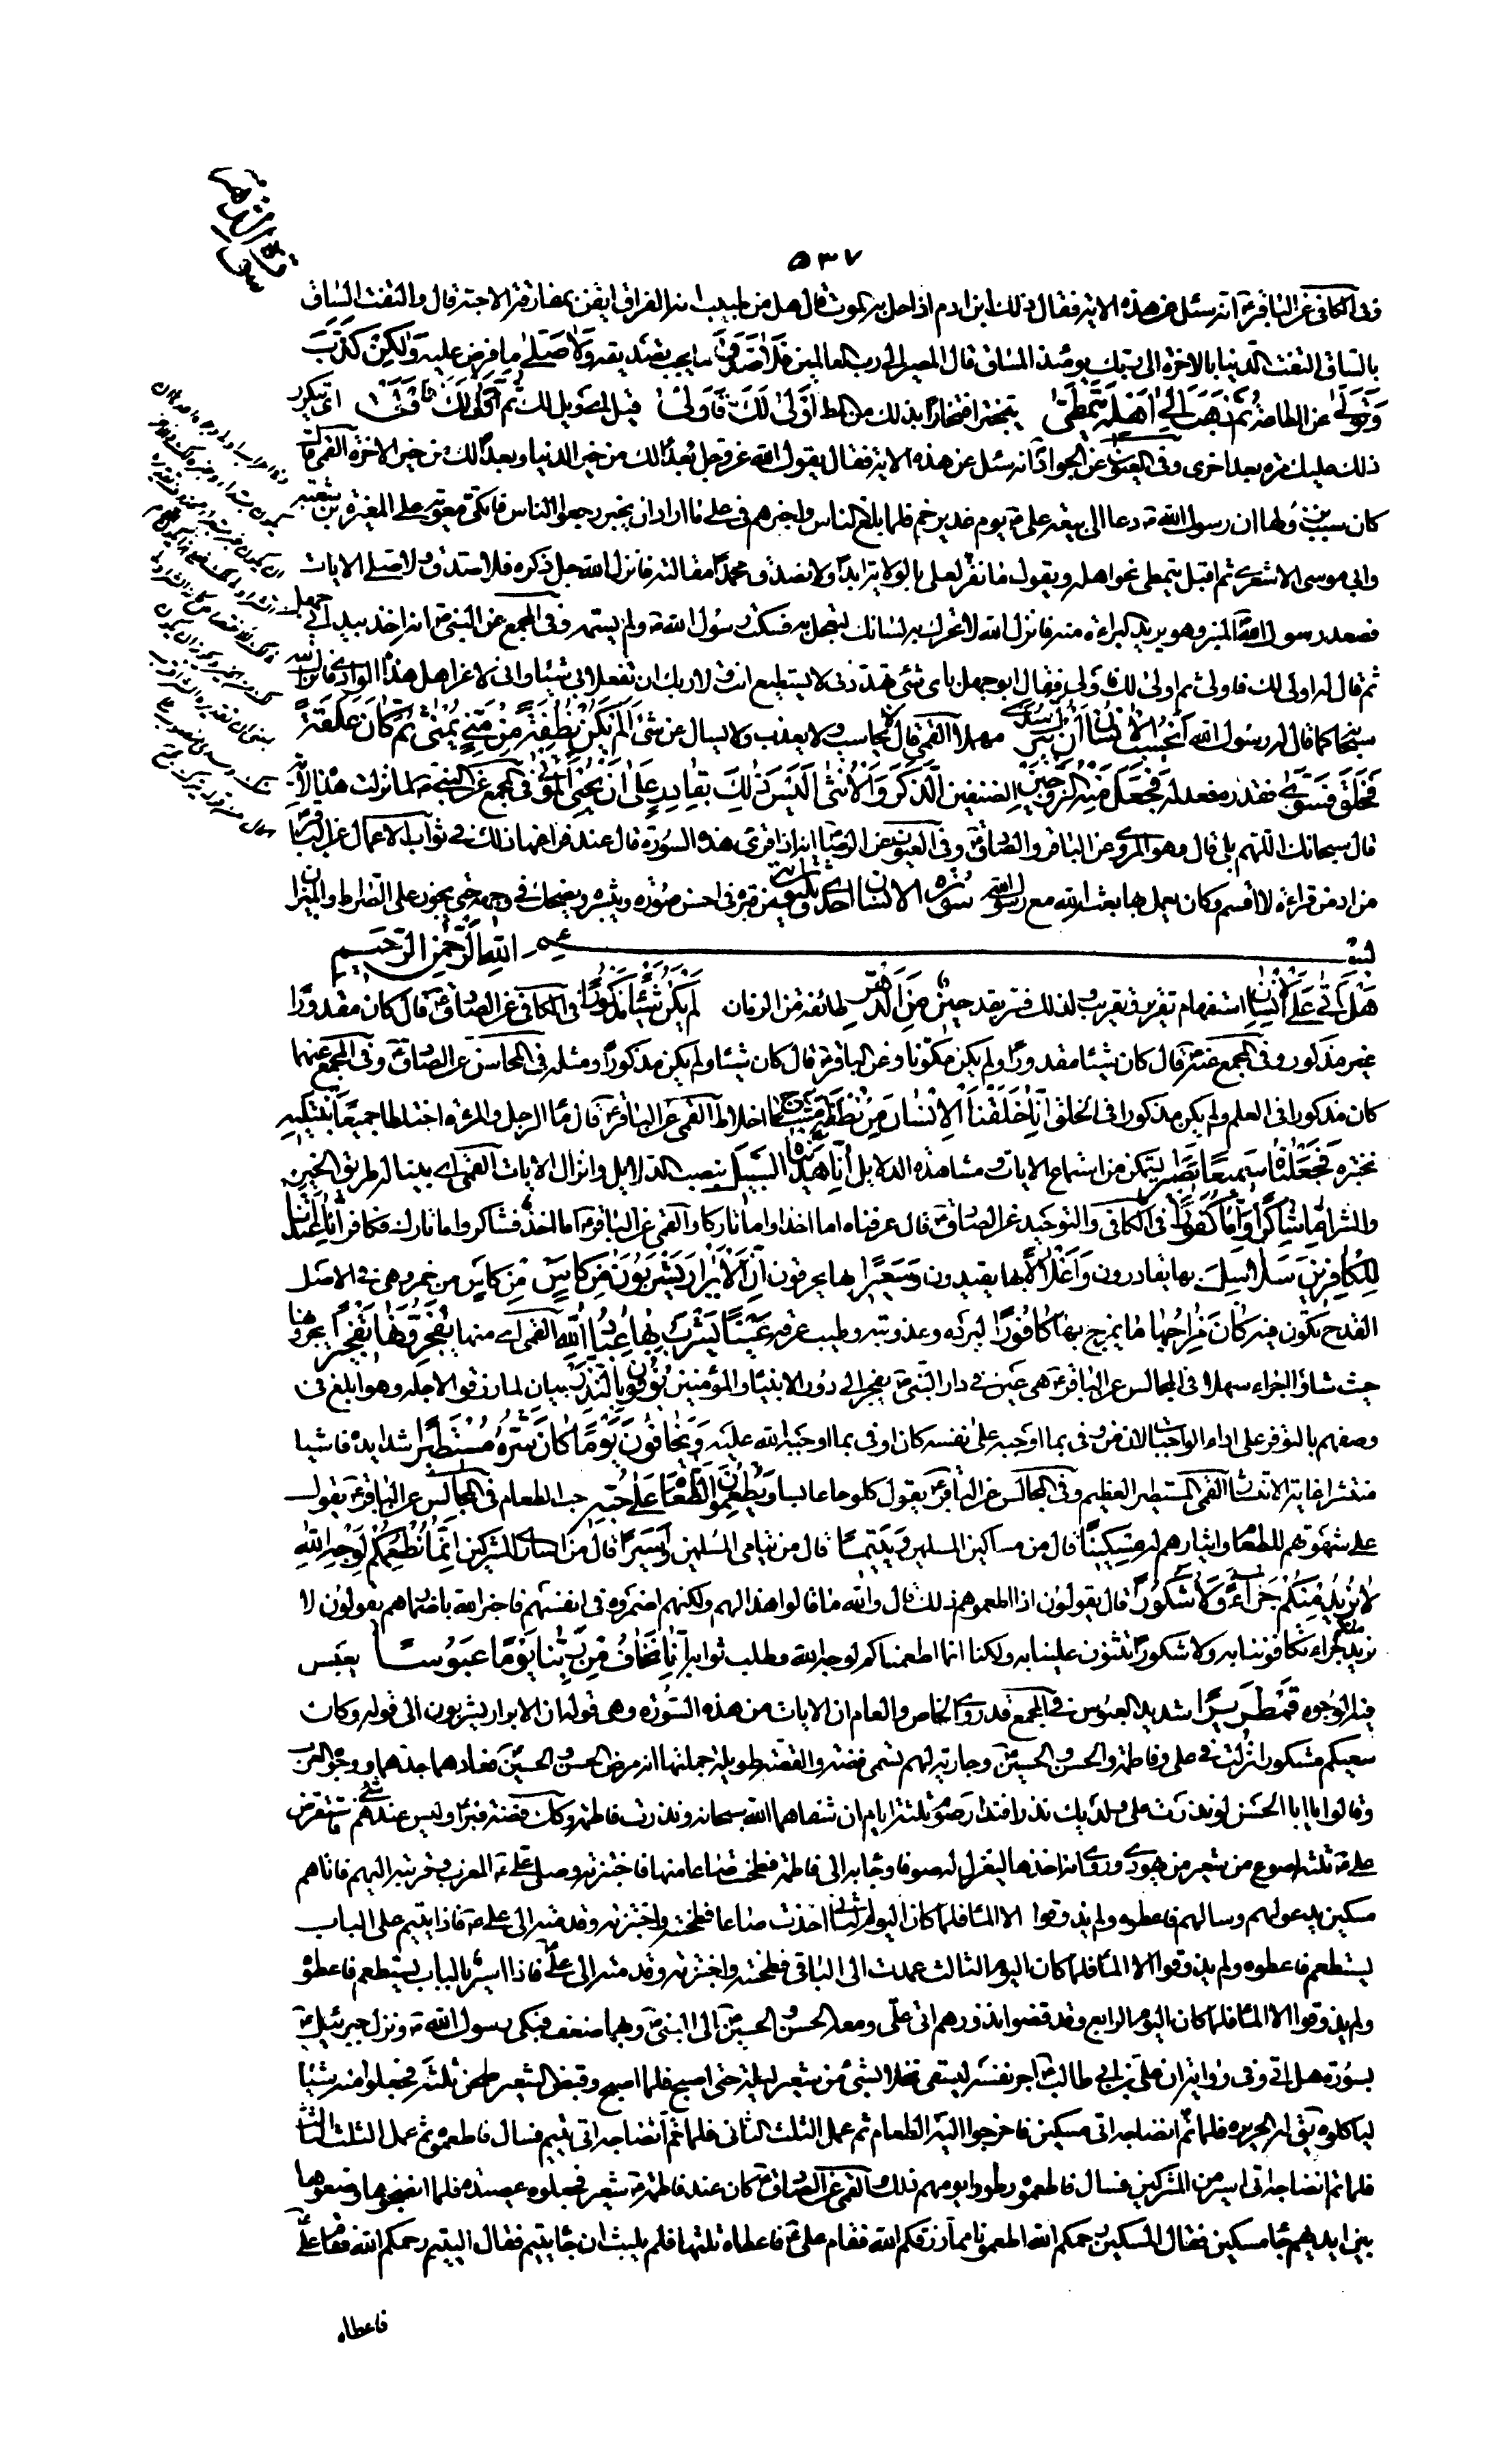 ٥٣٧
وفى الكافى عن الباقر ع انه سئل عن هذه الاية فقال ذلك ابن ادم اذا حل به الموت قال هل من طبيب انه الفراق ايقن بمفارقة الاحبة قال والتفت الساق
بالساق التفت الدنيا بالاخرة الى ربك يومئذ المساق قال المصير الى رب العالمين فلا صدق ما يجب تصديقه ولا صلى ما فرض عليه ولكن كذب
وتولى عن الطاعة ثم ذهب الى اهله يتمطى يتبختر افتخارا بذلك من المط اولى لك فاولى قيل اى ويل لك ثم اولى لك فاولى اى يتكرر
ذلك عليك مرة بعد اخرى وفى العيون عن الجواد ع انه سئل عن هذه الاية فقال يقول الله عز وجل بعدا لك من خير الدنيا وبعدا لك من خير الاخرة القمى
كان سبب نزولها ان رسول الله ص دعا الى بيعة على ع يوم غدير خم فلما بلغ الناس واخبرهم فى على ما اراد ان يخبر رجعوا الناس فاتكى معوية على المغيرة بن شعبة
وابى موسى الاشعرى ثم اقبل يتمطى نحو اهله ويقول ما نقر لعلى بالولاية ابدا ولا نصدق محمدا مقالته فانزل الله جل ذكره فلا صدق ولا صلى الايات
فصعد رسول الله المنبر وهو يريد البراءة منه فانزل الله لا تحرك به لسانك لتعجل به فسكت رسول الله ص ولم يسمه وفى المجمع عن النبى ص انه اخذ بيد ابى جهل
ثم قال له اولى لك فاولى ثم اولى لك فاولى فقال ابو جهل باى شئ تهددنى لا تستطيع انت ولا ربك ان تفعلا بى شيئا وانى لاعز اهل هذا الوادى فانزل الله
سبحانه كما قال له رسول الله ايحسب الانسان ان يترك سدى مهملا القمى قال لا يحاسب ولا يعذب ولا يسال عن شئ الم يك نطفة من منى يمنى ثم كان علقة
فخلق فسوى فقدره فعدله فجعل منه الزوجين الصنفين الذكر والانثى اليس ذلك بقادر على ان يحيى الموتى فى المجمع عن النبى ص لما نزلت هذه الاية
قال سبحانك اللهم بلى قال وهو المروى عن الباقر والصادق ع وفى العيون عن الرضا ع انه اذا قرئ هذه السورة قال عند فراغها ذلك فى ثواب الاعمال عن الباقر
من ادمن قراءة لا اقسم وكان يعمل بها بعثه الله مع رسول الله سورة الانسان احدى وثلثون اية من قبره فى احسن صورة ويبشره ويضحك فى وجهه حتى يجوز على الصراط والميزان
بسم الله الرحمن الرحيم
هل اتى على الانسان استفهام تقرير وتقريب ولذلك فسر بقد حين من الدهر طائفة من الزمان لم يكن شيئا مذكورا فى الكافى عن الصادق ع قال كان مقدورا
غير مذكور وفى المجمع عنه ع قال كان شيئا مقدورا ولم يكن مكونا وعن الباقر ع قال كان شيئا ولم يكن مذكورا ومثله فى المحاسن عن الصادق ع وفى المجمع عنهما
كان مذكورا فى العلم ولم يكن مذكورا فى الخلق انا خلقنا الانسان من نطفة امشاج اخلاط القمى عن الباقر ع قال ماء الرجل والمرءة اختلطا جميعا نبتليه
نختبره فجعلناه سميعا بصيرا ليتمكن من استماع الايات ومشاهدة الدلايل انا هديناه السبيل بنصب الدلايل وانزال الايات القمى اى بينا له طريق الخير
والشر اما شاكرا واما كفورا فى الكافى والتوحيد عن الصادق ع قال عرفناه اما اخذا واما تاركا والقمى عن الباقر ع اما اخذ فشاكر واما تارك فكافر انا اعتدنا
للكافرين سلاسل بها يقادون واغلالا بها يقيدون وسعيرا بها يحرقون ان الابرار يشربون من كاس من خمر وهى فى الاصل
القدح تكون فيه كان مزاجها ما يمزج بها كافورا لبرده وعذوبته وطيب عرفه عينا يشرب بها عباد الله القمى اى منها يفجرونها تفجيرا يجرونها
حيث شاؤا اجراء سهلا فى المجالس عن الباقر ع هى عين فى دار النبى ص يفجر الى دور الانبياء والمؤمنين يوفون بالنذر بيان لما رزقوا لاجله وهو ابلغ فى
وصفهم بالتوفر على اداء الواجبات لان من وفى بما اوجبه على نفسه كان اوفى بما اوجبه الله عليه ويخافون يوما كان شره مستطيرا شدايده فاشيا
منتشرا غاية الانتشار القمى المستطير العظيم وفى المجالس عن الباقر ع يقول كلوحا عابسا ويطعمون الطعام على حبه حب الطعام فى المجالس عن الباقر ع يقول
على شهوتهم للطعام وايثارهم له مسكينا قال من مساكين المسلمين ويتيما قال من يتامى المسلمين واسيرا قال من اسارى المشركين انما نطعمكم لوجه الله
لا نريد منكم جزاء ولا شكورا قال يقولون اذا اطعموهم ذلك قال والله ما قالوا هذا لهم ولكنهم اضمروه فى انفسهم فاخبر الله باضمارهم يقولون لا
نريد جزاء تكافوننا به ولا شكورا تثنون علينا به ولكنا انما اطعمناكم لوجه الله وطلب ثوابه انا نخاف من ربنا يوما عبوسا يعبس
فيه الوجوه قمطريرا شديد العبوس فى المجمع قد روى الخاص والعام ان الايات من هذه السورة وهى قوله ان الابرار يشربون الى قوله وكان
سعيكم مشكورا نزلت فى على وفاطمة والحسن والحسين ع وجارية لهم تسمى فضة والقصة طويلة جملتها انه مرض الحسن والحسين ع فعادهما جدهما ووجوه العرب
وقالوا يا ابا الحسن لو نذرت على ولديك نذرا فنذر صوم ثلثة ايام ان شفاهما الله سبحانه ونذرت فاطمة وكذلك فضة فبرءا وليس عندهم شئ فاستقرض
على ع ثلثة اصوع من شعير من يهودى وروى انه اخذها ليغزل له صوفا وجاء به الى فاطمة فطحنت صاعا منها فاختبزته وصلى على ع المغرب وقربته اليهم فاتاهم
مسكين يدعو لهم وسالهم فاعطوه ولم يذوقوا الا الماء فلما كان اليوم الثانى اخذت صاعا فطحنته واختبزته وقدمته الى على ع فاذا يتيم على الباب
يستطعم فاعطوه ولم يذوقوا الا الماء فلما كان اليوم الثالث عمدت الى الباقى فطحنته واختبزته وقدمته الى على فاذا اسير بالباب يستطعم فاعطوه
ولم يذوقوا الا الماء فلما كان اليوم الرابع وقد قضوا نذورهم اتى على ومعه الحسن والحسين ع الى النبى ص وبهما ضعف فبكى رسول الله ص ونزل جبرئيل ع
بسورة هل اتى وفى رواية ان على بن ابى طالب ع اجر نفسه ليستقى نخلا بشئ من شعير ليلة حتى اصبح فلما اصبح وقبض الشعير طحن ثلثه فجعلوا منه شيئا
لياكلوه يق له الحريرة فلما تم انضاجه اتى مسكين فاخرجوا اليه الطعام ثم عمل الثلث الثانى فلما تم انضاجه اتى يتيم فسال فاطعموه ثم عمل الثلث الثالث
فلما تم انضاجه اتى اسير من المشركين فسال فاطعموه وطووا يومهم ذلك والقمى عن الصادق ع كان عند فاطمة ع شعير فجعلوه عصيدة فلما انضجوها ووضعوها
بين ايديهم جاء مسكين فقال المسكين رحمكم الله اطعمونا مما رزقكم الله فقام على ع فاعطاه ثلثها فلم يلبث ان جاء يتيم فقال اليتيم رحمكم الله فقام على
فاعطاه